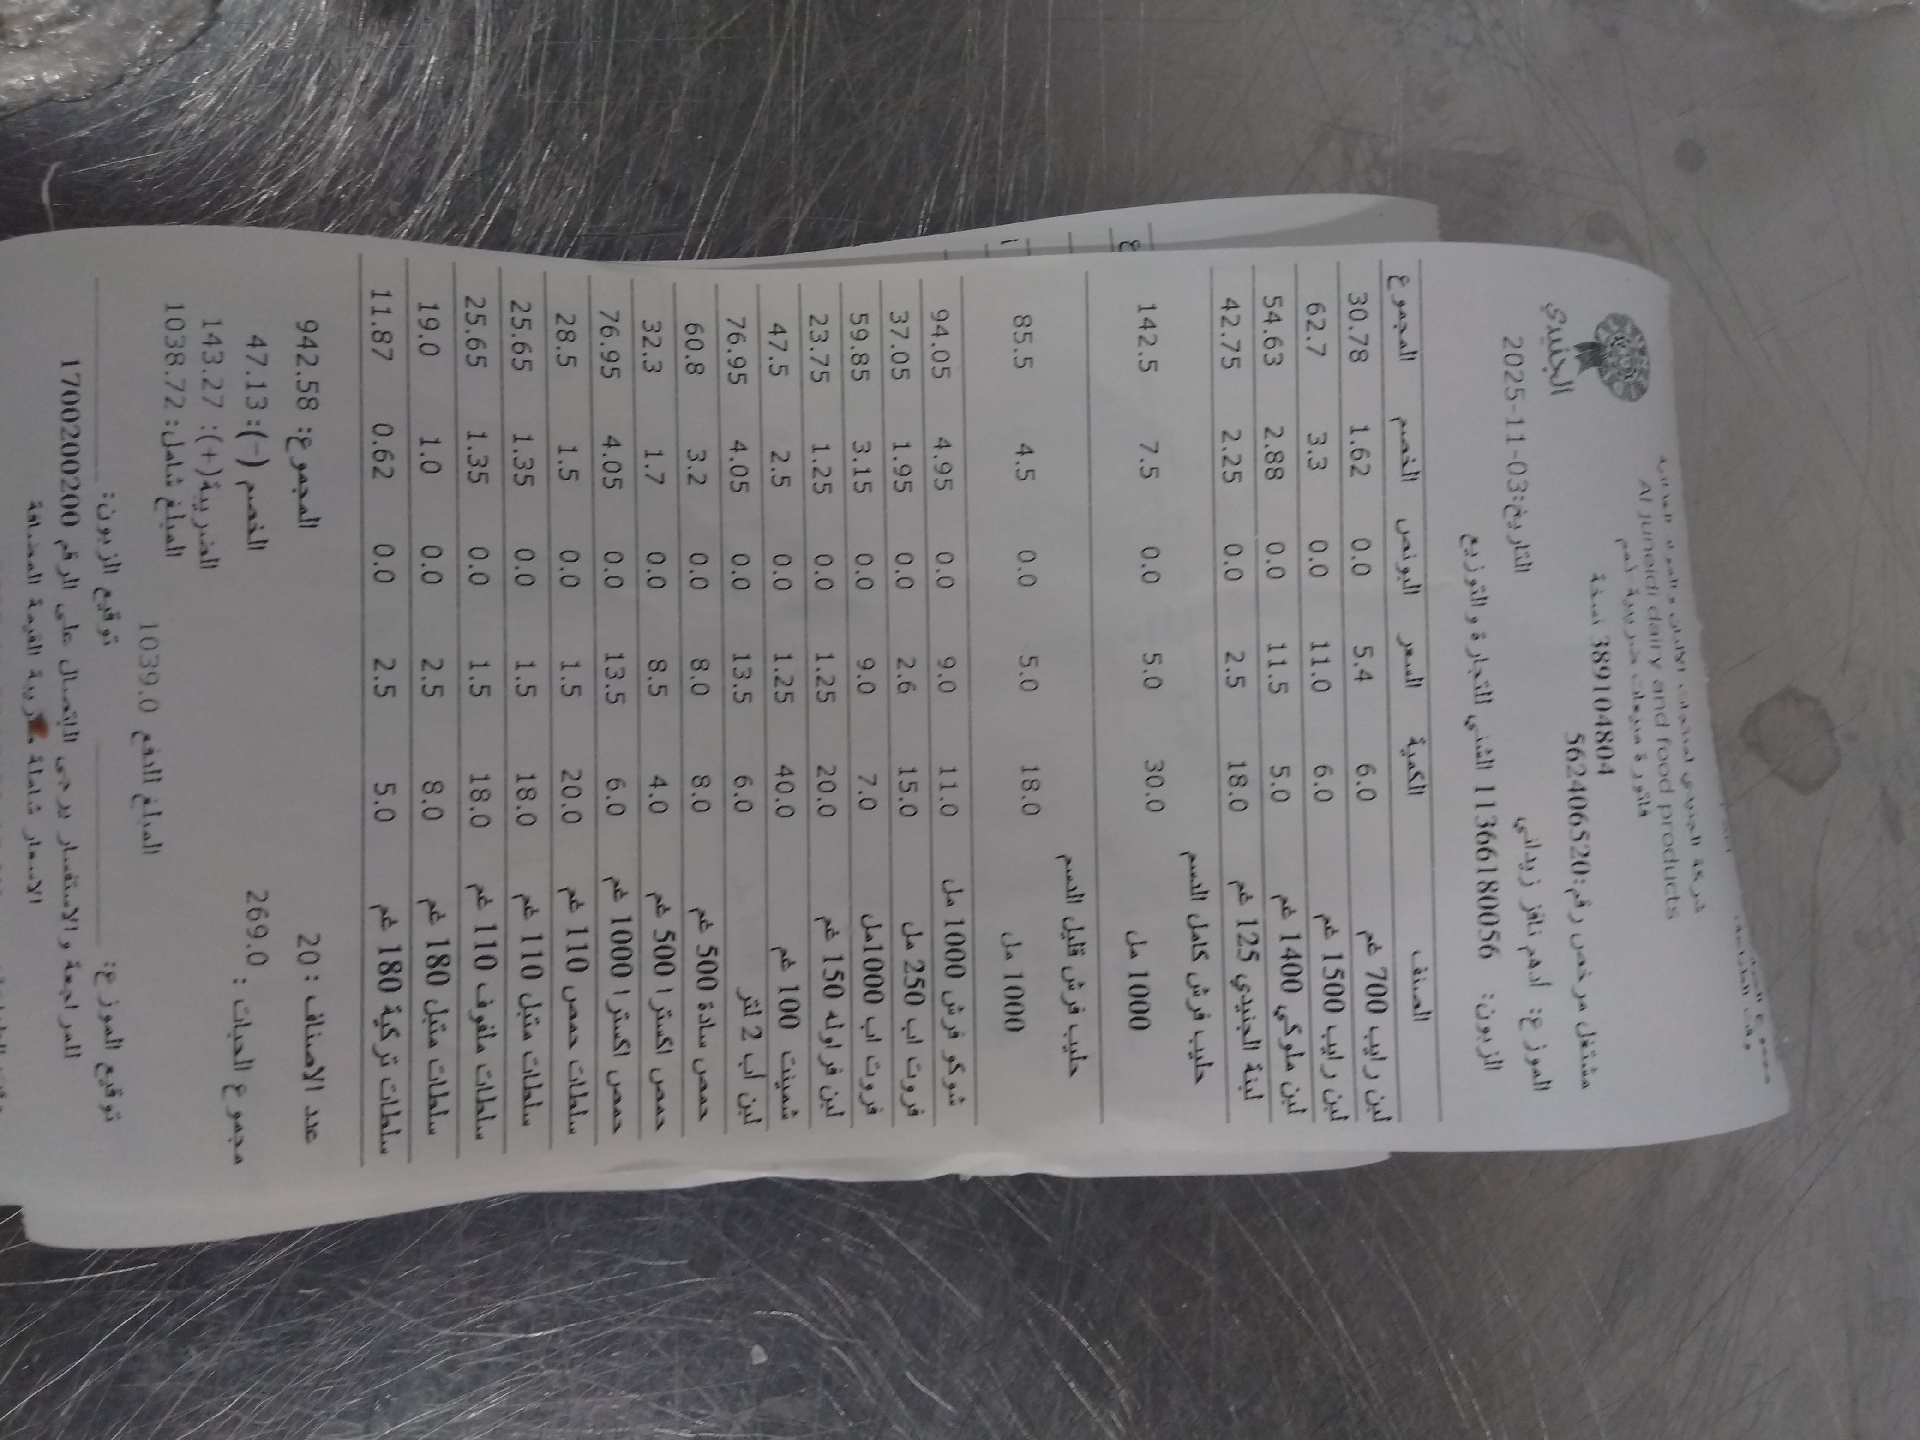 الجنيدي
شركة الجنيدي لمنتجات الالبان و المواد الغذائية
Al juneidi dairy and food products
فاتورة مبيعات ضريبية رقم
389104804 نسخة
مشتغل مرخص رقم:562406520
التاريخ:2025-11-03 الموزع: أدهم نافز زيداني
الزبون: 11366180056 الشني للتجارة والتوزيع
الصنف الكمية السعر البونص الخصم المجموع
لبن رايب 700 غم 6.0 5.4 0.0 1.62 30.78
لبن رايب 1500 غم 6.0 11.0 0.0 3.3 62.7
لبن ملوكي 1400 غم 5.0 11.5 0.0 2.88 54.63
لبنة الجنيدي 125 غم 18.0 2.5 0.0 2.25 42.75
حليب فرش كامل الدسم
1000 مل 30.0 5.0 0.0 7.5 142.5
حليب فرش قليل الدسم
1000 مل 18.0 5.0 0.0 4.5 85.5
شوكو فرش 1000 مل 11.0 9.0 0.0 4.95 94.05
فروت اب 250 مل 15.0 2.6 0.0 1.95 37.05
فروت اب 1000مل 7.0 9.0 0.0 3.15 59.85
لبن فراوله 150 غم 20.0 1.25 0.0 1.25 23.75
شمينت 100 غم 40.0 1.25 0.0 2.5 47.5
لبن أب 2 لتر 6.0 13.5 0.0 4.05 76.95
حمص سادة 500 غم 8.0 8.0 0.0 3.2 60.8
حمص اكسترا 500 غم 4.0 8.5 0.0 1.7 32.3
حمص اكسترا 1000 غم 6.0 13.5 0.0 4.05 76.95
سلطات حمص 110 غم 20.0 1.5 0.0 1.5 28.5
سلطات متبل 110 غم 18.0 1.5 0.0 1.35 25.65
سلطات ملفوف 110 غم 18.0 1.5 0.0 1.35 25.65
سلطات متبل 180 غم 8.0 2.5 0.0 1.0 19.0
سلطات تركية 180 غم 5.0 2.5 0.0 0.62 11.87
عدد الاصناف : 20 المجموع: 942.58
مجموع الحبات : 269.0 الخصم (-): 47.13
الضريبة(+): 143.27
المبلغ شامل: 1038.72
المبلغ للدفع 1039.0
توقيع الموزع: توقيع الزبون:
للمراجعة و الاستفسار يرجى الاتصال على الرقم 1700200200
الاسعار شاملة ضريبة القيمة المضافة